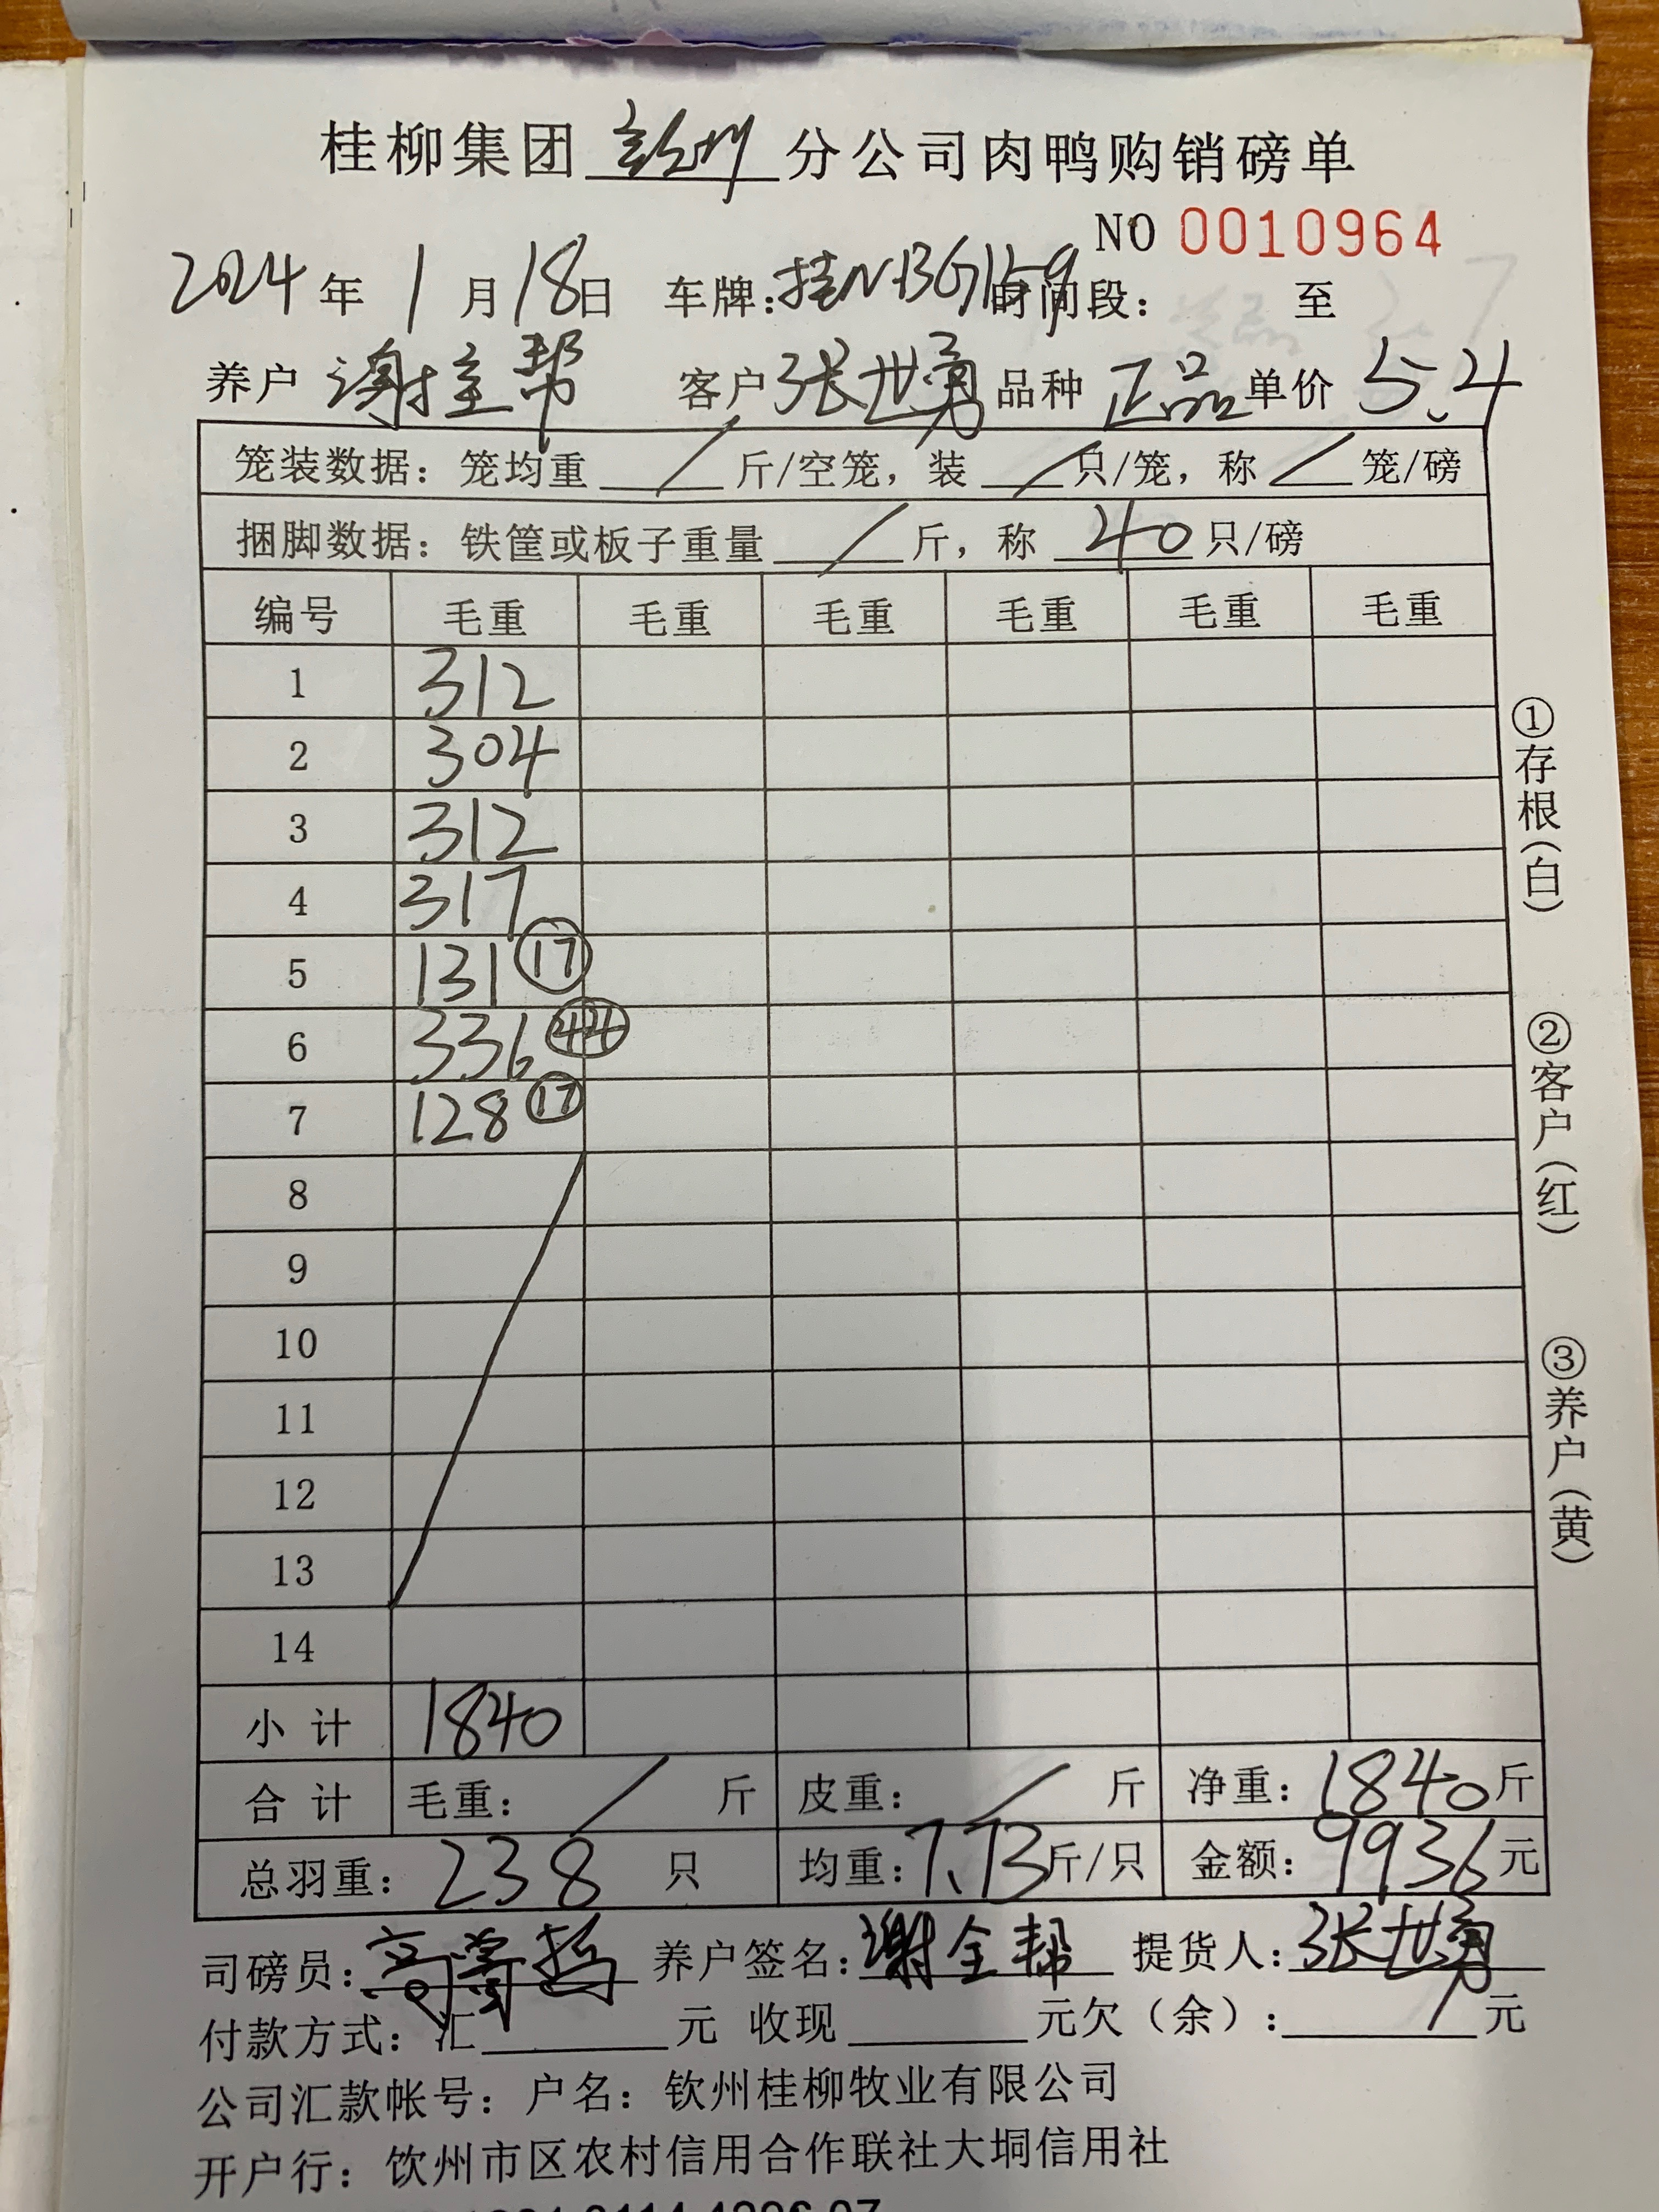 桂柳集团 分公司肉鸭购销磅单
NO 0010964
2024 年 1 月 18 日 车牌: 桂NBG159 时间段: 至
养户 谢全帮 客户 张世勇 品种 正品 单价 5.4
笼装数据: 笼均重 / 斤/空笼, 装 / 只/笼, 称 / 笼/磅
捆脚数据: 铁筐或板子重量 / 斤, 称 40 只/磅
编号 毛重 毛重 毛重 毛重 毛重 毛重
1 312
2 304
3 312
4 317
5 131 ⑰
6 336 ㊹
7 128 ⑰
8
9
10
11
12
13
14
小计 1840
合计 毛重: / 斤 皮重: / 斤 净重: 1840 斤
总羽重: 238 只 均重: 7.73 斤/只 金额: 9936 元
司磅员: 养户签名: 谢全帮 提货人: 张世勇
付款方式: 汇 元 收现 元欠(余): / 元
公司汇款帐号: 户名: 钦州桂柳牧业有限公司
开户行: 钦州市区农村信用合作联社大垌信用社
①存根(白)
②客户(红)
③养户(黄)